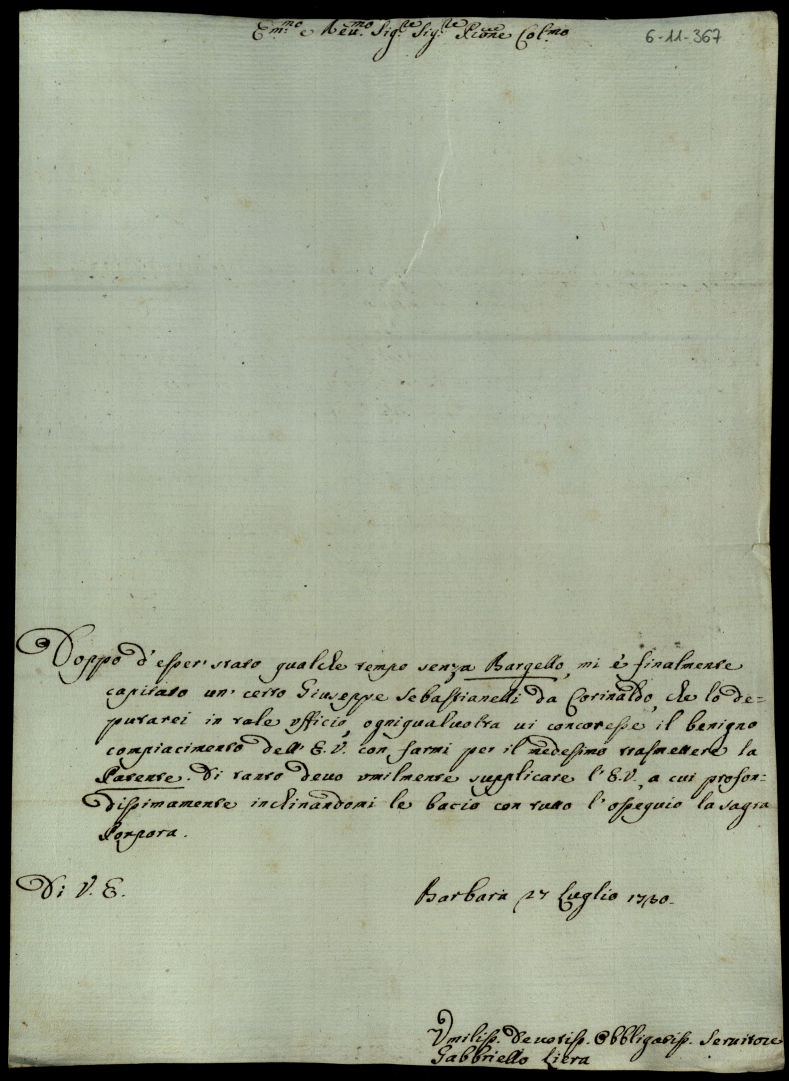 Em.mo e Reu.mo Sig.re Sig.re Pr̃one Col.mo
6-11-367
Doppo d'esser' stato qualche tempo senza Bargello, mi è finalmente
capitato un' certo Giuseppe Sebastianelli da Corinaldo, che lo de=
putarei in tale vfficio, ogniqualuolta ui concoresse il benigno
compiacimento dell' E.V. con farmi per il medesimo trasmettere la
Patente. Di tanto deuo vmilmente supplicare l'E.V., a cui profon=
dissimamente inchinandomi le bacio con tutto l'ossequio la sagra
Porpora.
Di V. E.
Barbara 27 Luglio
Vmiliss. Deuotiss. Obbligatiss. Seruitore
Gabbriello